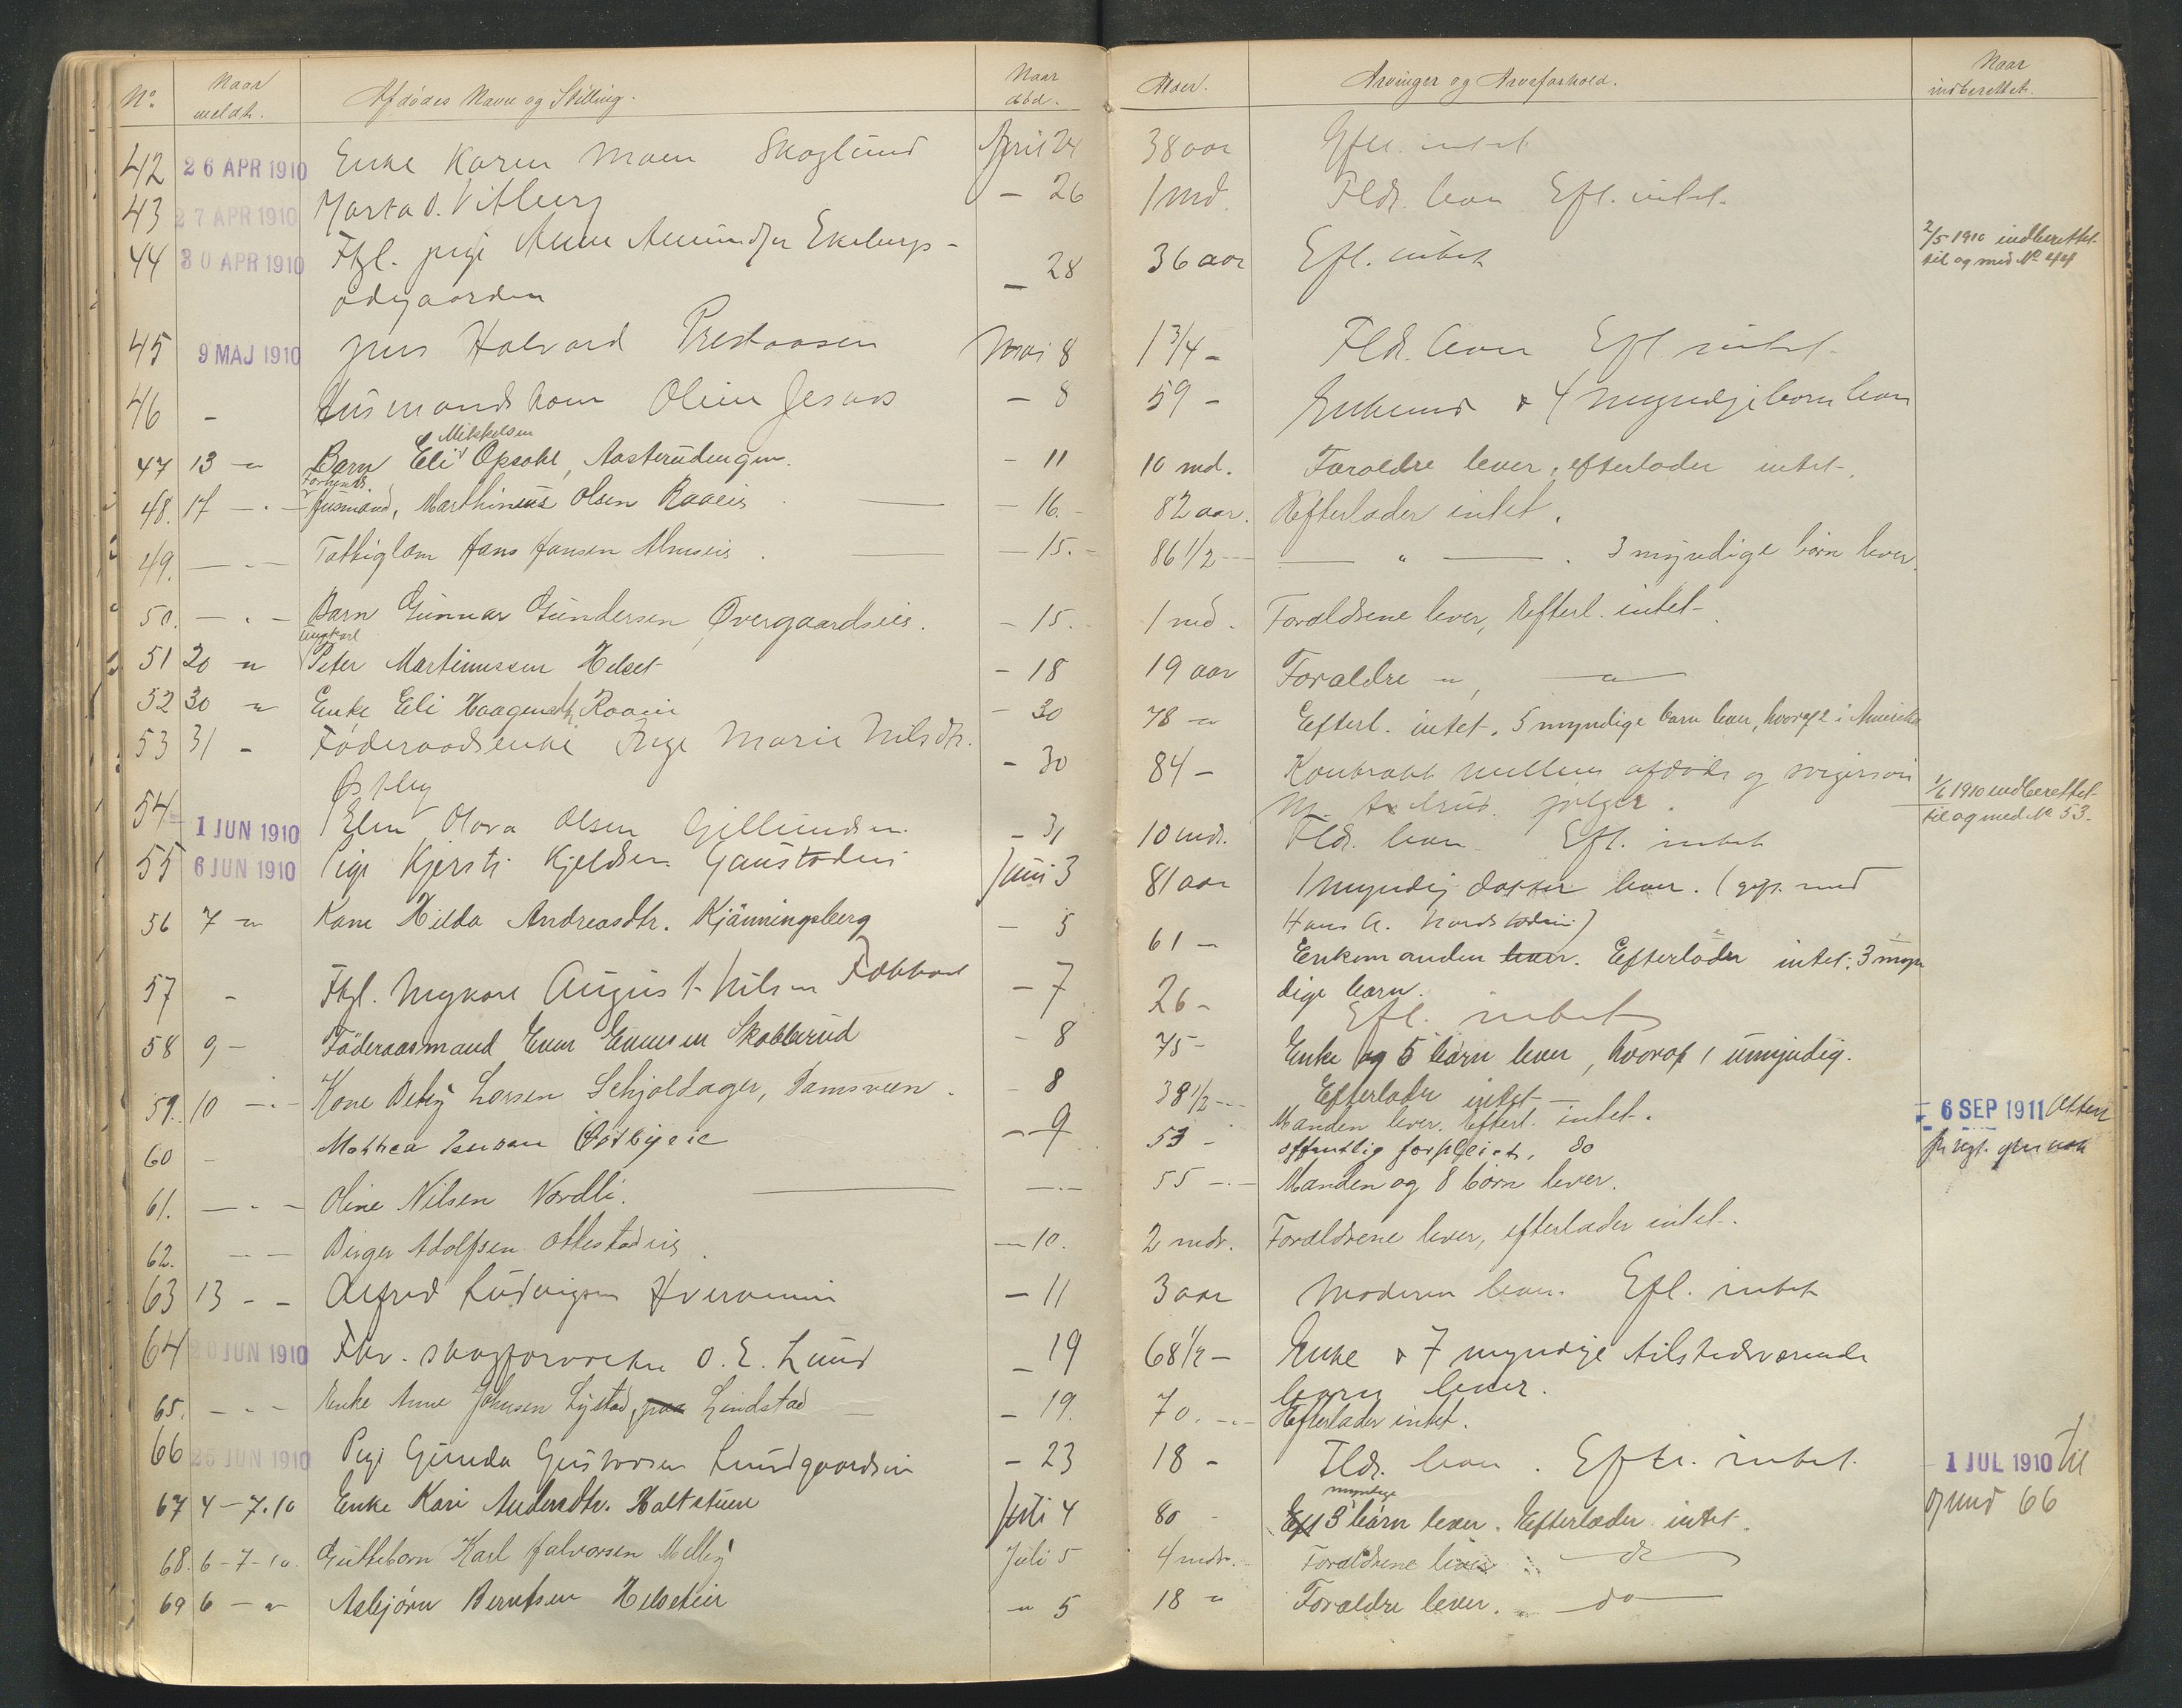 No. Naar meldt. Afdødes Navn og Stilling. Naar død. Alder. Arvinger og Arveforhold. Naar indberettet.
42 26 APR 1910 Enke Karen Moen Skoglund April 24 38 aar Efl. intet
43 27 APR 1910 Marta O. Vitberg – 26 1 md. Fldr. lever Efl. intet.
44 30 APR 1910 Fhgl. pige Anne Amundsen Ekeberg- – 28 36 aar Efl. intet 2/5 1910 indberettet
ødegaarden til og med No 44
45 9 MAJ 1910 Halvard Prestaasen Mai 8 1 3/4 – Fldr. lever Efl. intet.
46 – Husmandskone Oline – 8 59 – Enkemd & 4 myndige børn lever
47 13 – " Barn Eli Mikkelsen Opsahl, Aasterudengen. – 11 10 md. Forældre lever, efterlader intet.
48. 17 – " – Forhenv. Husmand, Marthinius Olsen Raaeie – 16. – 82 aar. Efterlader intet.
49. – " – Fattiglem Hans Hansen Almseie – 15. – 86 1/2 – — " — . 3 myndige børn lever.
50. – " – Barn Gunnar Gundersen Øvergaardseie. – 15. – 1 md. Forældrene lever, Efterl. intet.
51 20 – " Ungkarl Peter Martinussen Helset – 18 19 aar Forældre – " , — " —
52 30 – " Enke Eli Haagensdtr. Raaeie – 30 78 – " Efterl. intet. 5 myndige barn lever, hvoraf 2 i Amerika
53 31 – Føderaadsenke Inge Marie Nilsdtr. – 30 84 – Kontrakt mellem afdøde og svigersøn
Østby M. følger. 1/6 1910 indberettet
til og med No 53.
54 1 JUN 1910 Elen Olava Olsen Gjellundsen – 31 10 mdr. Fldr. lever Efl. intet
55 6 JUN 1910 Pige Kjersti Kjeldsen Gaustadeie Juni 3 81 aar 1 myndig datter lever. (gift med
Hans A. Nordstadeie)
56 7 – " Kone Hilda Andreasdtr. Kjänningsberg – 5 61 – Enkemanden lever. Efterlader intet. 3 myn
dige barn.
57 – Fhgl. Ungkarl August Nilsen – 7 26 – Efl. intet
58 9 – Föderaasmand Even Evensen Skabberud – 8 75 – Enke og 5 børn lever, hvoraf 1 umyndig.
Efterlader intet –
59. 10 – " – Kone Betzy Larsen Schjoldager, Damsveen. – 8 38 1/2 – Manden lever. Efterl. intet. 6 SEP 1911 Atten
60 – Mathea Iversen Østbyeie – 9 53 – offentlig forpleiet, do
61. – " – Oline Nilsen Nordli. – " – 55 – " – Manden og 8 børn lever.
62. – – Birger Adolfsen Ottestadeie – 10. 2 mdr. Forældrene lever, efterlader intet.
63 13 – – Alfred Ludvigsen Hveraneie – 11 3 aar Moderen lever. Efl. intet
64 20 JUN 1910 Fhv. skogforvalter O. E. Lund – 19 68 1/2 – Enke & 7 myndige tilstedeværende
børn lever.
65. – " – Enke Anne Johnsen Lystad, paa Lindstad – 19. 70. – " – Efterlader intet.
66 25 JUN 1910 Pige Gunda Gustavsen Lundgaardseie – 23 18 – Fldr. lever. Eftr. intet. 1 JUL 1910 til
og med 66
67 4 – 7. 10 Enke Kari Andersdtr. Haltstuen Juli 4 80 – Eft 3 myndige børn lever. Efterlader intet.
68. 6 – 7 – 10. Guttebarn Karl Halvorsen Melby Juli 5 4 mdr. Forældrene lever do
69 6 – " Asbjørn Berntsen Helseteie – " 5 18 – " Forældre lever. do